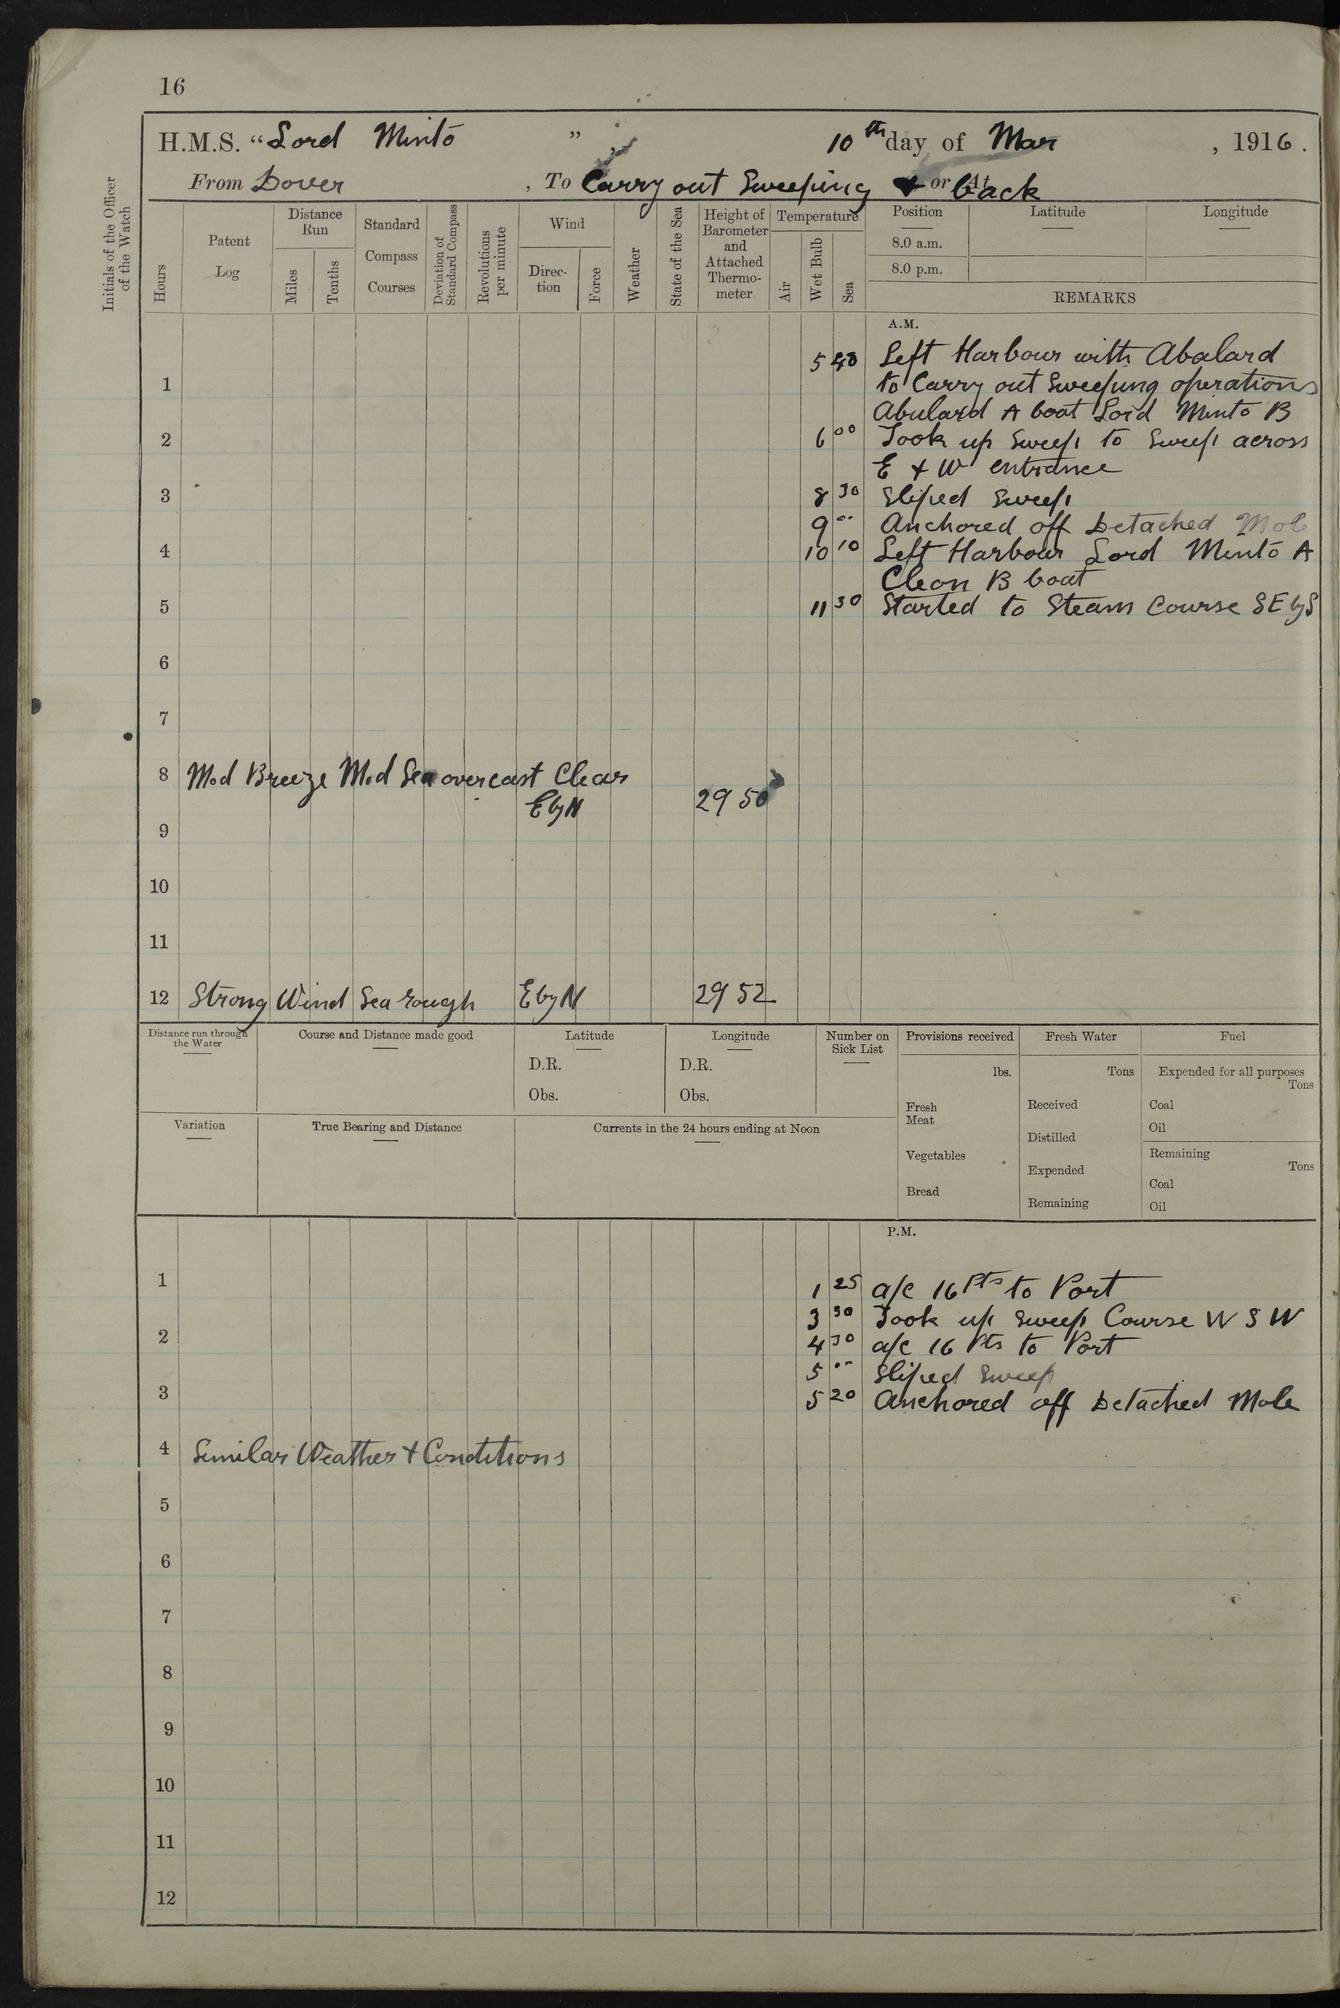 16
H.M.S. "Lord Minto", 10th day of Mar, 1916.
From Dover, To Carry out Sweeping & or At back
Initials of the Officer of the Watch
Hours
Patent Log
Distance Run
Miles
Tenths
Standard Compass Courses
Deviation of Standard Compass
Revolutions per minute
Wind
Direc-tion
Force
Weather
State of the Sea
Height of Barometer and Attached Thermo-meter
Temperature
Air
Wet Bulb
Sea
Position
8.0 a.m.
8.0 p.m.
Latitude
Longitude
REMARKS
A.M.
5 40 Left Harbour with Abalard
1 to Carry out Sweeping operations
Abulard A boat Lord Minto B
2 6 00 Took up Sweep to Sweep across
E & W entrance
3 8 30 Sliped Sweep
9 " Anchored off Detached Mole
4 10 10 Left Harbour Lord Minto A
Cleon B boat
5 11 30 Started to Steam Course SE by S
6
7
8 Mod Breeze Mod Sea overcast Clear
E by N 29 50
9
10
11
12 Strong Wind Sea rough E by N 29 52
Distance run through the Water
Course and Distance made good
Latitude
D.R.
Obs.
Longitude
D.R.
Obs.
Number on Sick List
Provisions received
lbs.
Fresh Meat
Vegetables
Bread
Fresh Water
Tons
Received
Distilled
Expended
Remaining
Fuel
Expended for all purposes
Tons
Coal
Oil
Remaining
Tons
Coal
Oil
Variation
True Bearing and Distance
Currents in the 24 hours ending at Noon
P.M.
1 1 25 a/c 16 Pts to Port
3 30 Took up Sweep Course W S W
2 4 30 a/c 16 Pts to Port
5 " Sliped Sweep
3 5 20 Anchored off Detached Mole
4 Similar Weather & Conditions
5
6
7
8
9
10
11
12